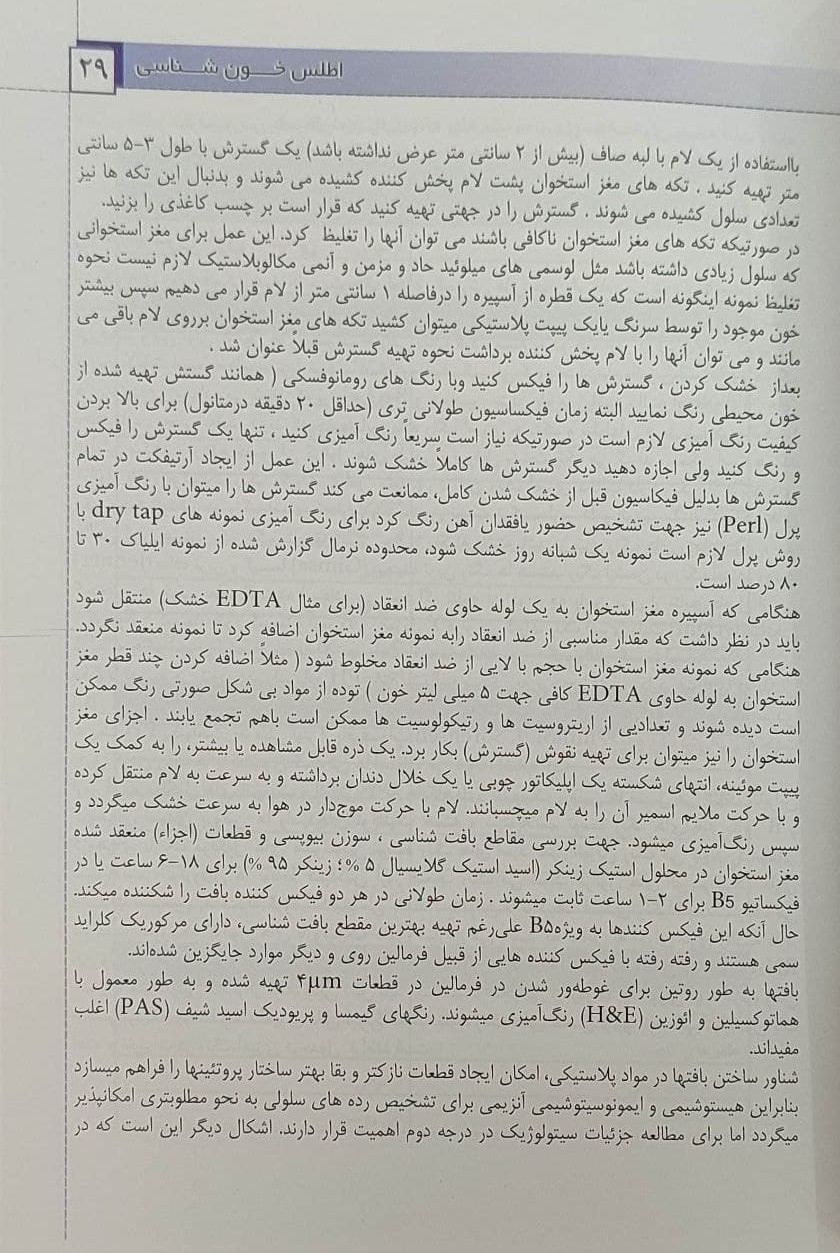 ۲۹
اطلس خون شناسی
بااستفاده از یک لام با لبه صاف (بیش از ۲ سانتی متر عرض نداشته باشد) یک گسترش با طول ۳-۵ سانتی
متر تهیه کنید . تکه های مغز استخوان پشت لام پخش کننده کشیده می شوند و بدنبال این تکه ها نیز
تعدادی سلول کشیده می شوند . گسترش را در جهتی تهیه کنید که قرار است بر چسب کاغذی را بزنید.
در صورتیکه تکه های مغز استخوان ناکافی باشند می توان آنها را تغلیظ کرد. این عمل برای مغز استخوانی
که سلول زیادی داشته باشد مثل لوسمی های میلوئید حاد و مزمن و آنمی مکالوبلاستیک لازم نیست نحوه
تغلیظ نمونه اینگونه است که یک قطره از آسپیره را درفاصله ۱ سانتی متر از لام قرار می دهیم سپس بیشتر
خون موجود را توسط سرنگ یایک پیپت پلاستیکی میتوان کشید تکه های مغز استخوان برروی لام باقی می
مانند و می توان آنها را با لام پخش کننده برداشت نحوه تهیه گسترش قبلاً عنوان شد .
بعداز خشک کردن ، گسترش ها را فیکس کنید وبا رنگ های رومانوفسکی ( همانند گستش تهیه شده از
خون محیطی رنگ نمایید البته زمان فیکساسیون طولانی تری (حداقل ۲۰ دقیقه درمتانول) برای بالا بردن
کیفیت رنگ آمیزی لازم است در صورتیکه نیاز است سریعاً رنگ آمیزی کنید ، تنها یک گسترش را فیکس
و رنگ کنید ولی اجازه دهید دیگر گسترش ها کاملاً خشک شوند . این عمل از ایجاد آرتیفکت در تمام
گسترش ها بدلیل فیکاسیون قبل از خشک شدن کامل، ممانعت می کند گسترش ها را میتوان با رنگ آمیزی
پرل (Perl) نیز جهت تشخیص حضور یافقدان آهن رنگ کرد برای رنگ آمیزی نمونه های dry tap با
روش پرل لازم است نمونه یک شبانه روز خشک شود، محدوده نرمال گزارش شده از نمونه ایلیاک ۳۰ تا
۸۰ درصد است.
هنگامی که آسپیره مغز استخوان به یک لوله حاوی ضد انعقاد (برای مثال EDTA خشک) منتقل شود
باید در نظر داشت که مقدار مناسبی از ضد انعقاد رابه نمونه مغز استخوان اضافه کرد تا نمونه منعقد نگردد.
هنگامی که نمونه مغز استخوان با حجم با لایی از ضد انعقاد مخلوط شود ( مثلاً اضافه کردن چند قطر مغز
استخوان به لوله حاوی EDTA کافی جهت ۵ میلی لیتر خون ) توده از مواد بی شکل صورتی رنگ ممکن
است دیده شوند و تعدادیی از اریتروسیت ها و رتیکولوسیت ها ممکن است باهم تجمع یابند . اجزای مغز
استخوان را نیز میتوان برای تهیه نقوش (گسترش) بکار برد. یک ذره قابل مشاهده یا بیشتر، را به کمک یک
پیپت موئینه، انتهای شکسته یک اپلیکاتور چوبی یا یک خلال دندان برداشته و به سرعت به لام منتقل کرده
و با حرکت ملایم اسمیر آن را به لام میچسبانند. لام با حرکت موج‌دار در هوا به سرعت خشک میگردد و
سپس رنگ‌آمیزی میشود. جهت بررسی مقاطع بافت شناسی ، سوزن بیوپسی و قطعات (اجزاء) منعقد شده
مغز استخوان در محلول استیک زینکر (اسید استیک گلایسیال ۵ %؛ زینکر ۹۵ %) برای ۱۸-۶ ساعت یا در
فیکساتیو B5 برای ۲-۱ ساعت ثابت میشوند . زمان طولانی در هر دو فیکس کننده بافت را شکننده میکند.
حال آنکه این فیکس کنندها به ویژهB۵ علی‌رغم تهیه بهترین مقطع بافت شناسی، دارای مرکوریک کلراید
سمی هستند و رفته رفته با فیکس کننده هایی از قبیل فرمالین روی و دیگر موارد جایگزین شده‌اند.
بافتها به طور روتین برای غوطه‌ور شدن در فرمالین در قطعات ۴μm تهیه شده و به طور معمول با
هماتوکسیلین و ائوزین (H&E) رنگ‌آمیزی میشوند. رنگهای گیمسا و پریودیک اسید شیف (PAS) اغلب
مفیداند.
شناور ساختن بافتها در مواد پلاستیکی، امکان ایجاد قطعات نازکتر و بقا بهتر ساختار پروتئینها را فراهم میسازد
بنابراین هیستوشیمی و ایمونوسیتوشیمی آنزیمی برای تشخیص رده های سلولی به نحو مطلوبتری امکانپذیر
میگردد اما برای مطالعه جزئیات سیتولوژیک در درجه دوم اهمیت قرار دارند. اشکال دیگر این است که در